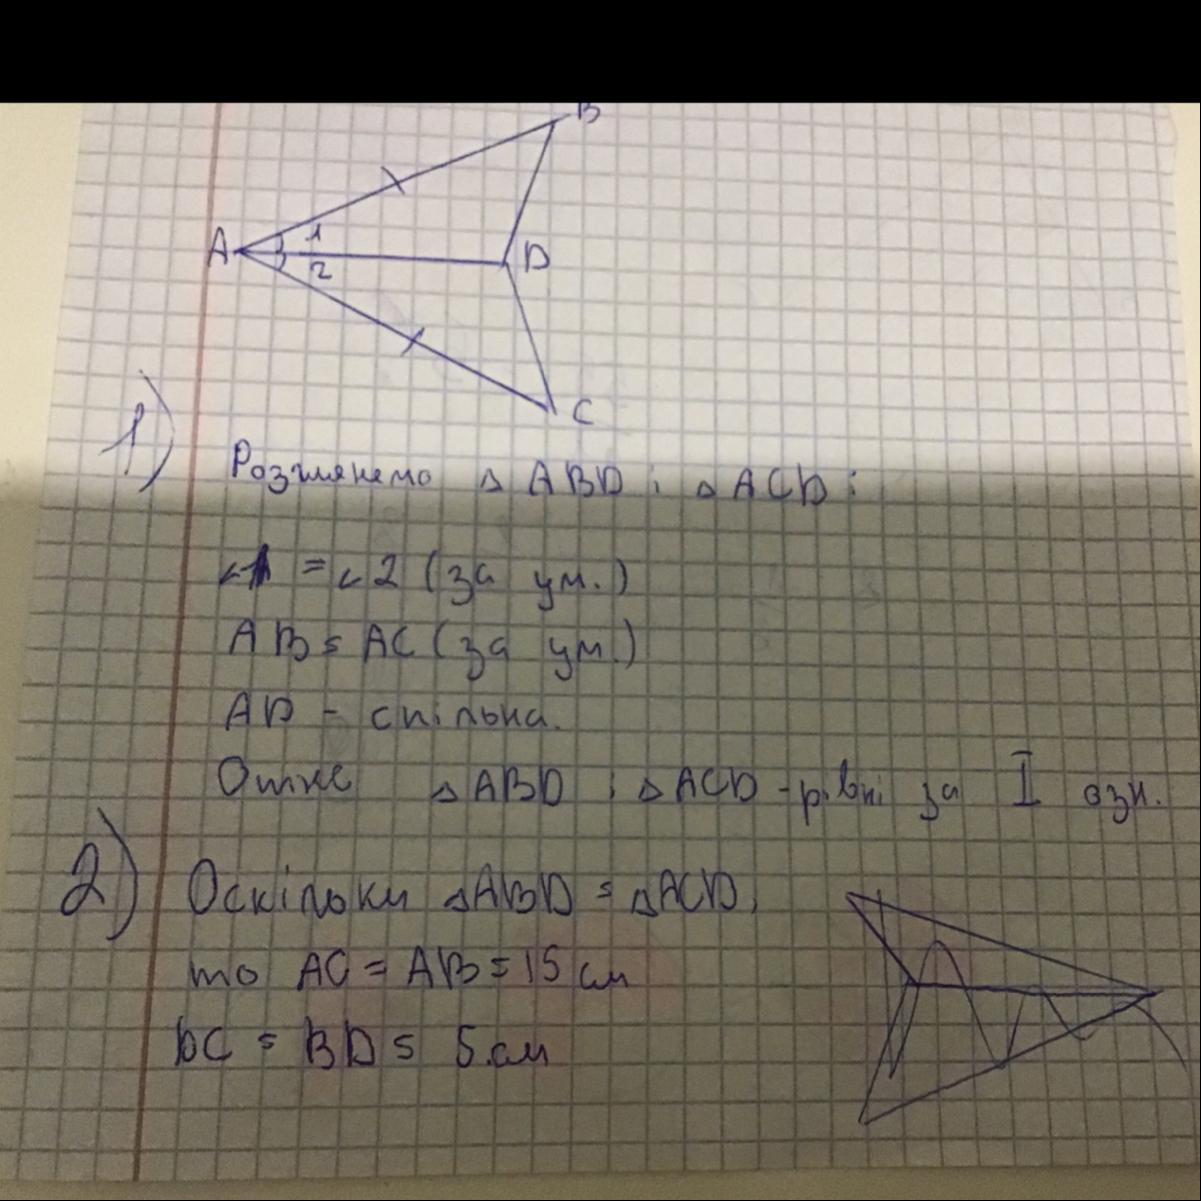 B
A 1
2 D
C
1)
Розглянемо △ ABD і △ ACD:
∠1 = ∠2 (за ум.)
AB = AC (за ум.)
AD - спільна.
Отже △ABD і △ACD - рівні за I озн.
2) Оскільки △ABD = △ACD,
то AC = AB = 15 см
DC = BD = 5 см